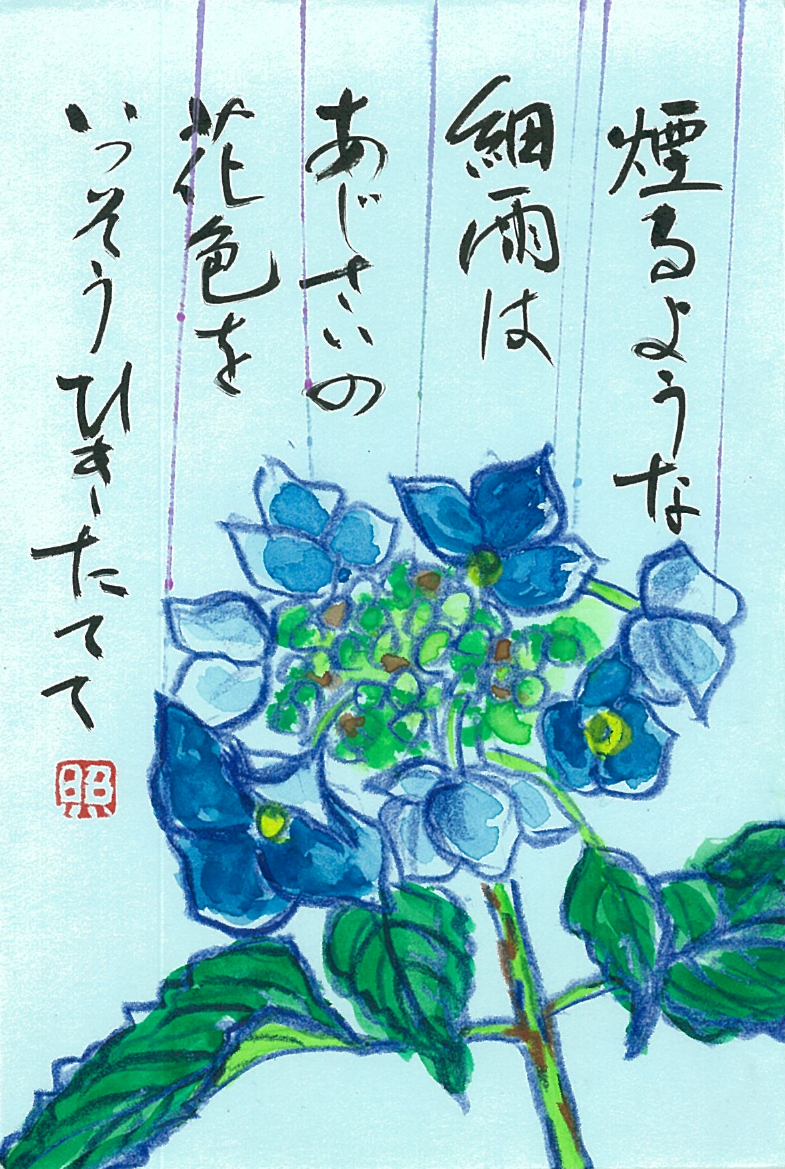 煙るような
細雨は
あじさいの
花色を
いっそうひきたてて
照